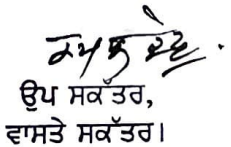 ਉਪ ਸਕੱਤਰ,
ਵਾਸਤੇ ਸਕੱਤਰ।